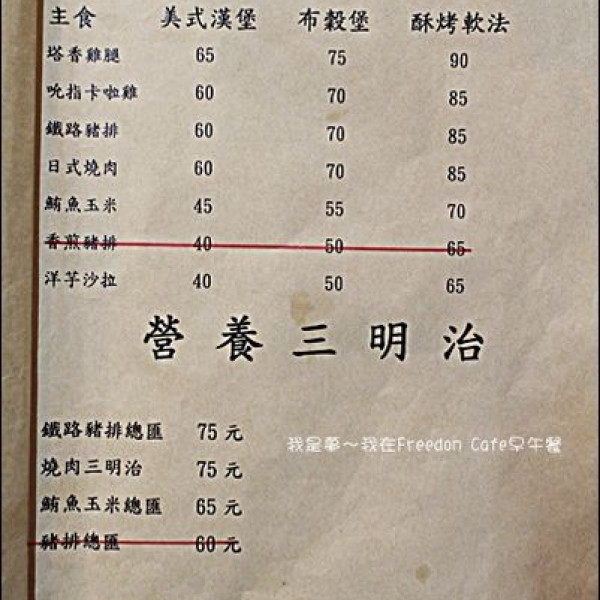 主食 美式漢堡 布穀堡 酥烤軟法
塔香雞腿 65 75 90
吮指卡啦雞 60 70 85
鐵路豬排 60 70 85
日式燒肉 60 70 85
鮪魚玉米 45 55 70
香煎豬排 40 50 65
洋芋沙拉 40 50 65
營養三明治
鐵路豬排總匯 75 元
我是夢～我在Freedon Cafe早午餐
燒肉三明治 75 元
鮪魚玉米總匯 65 元
豬排總匯 60 元